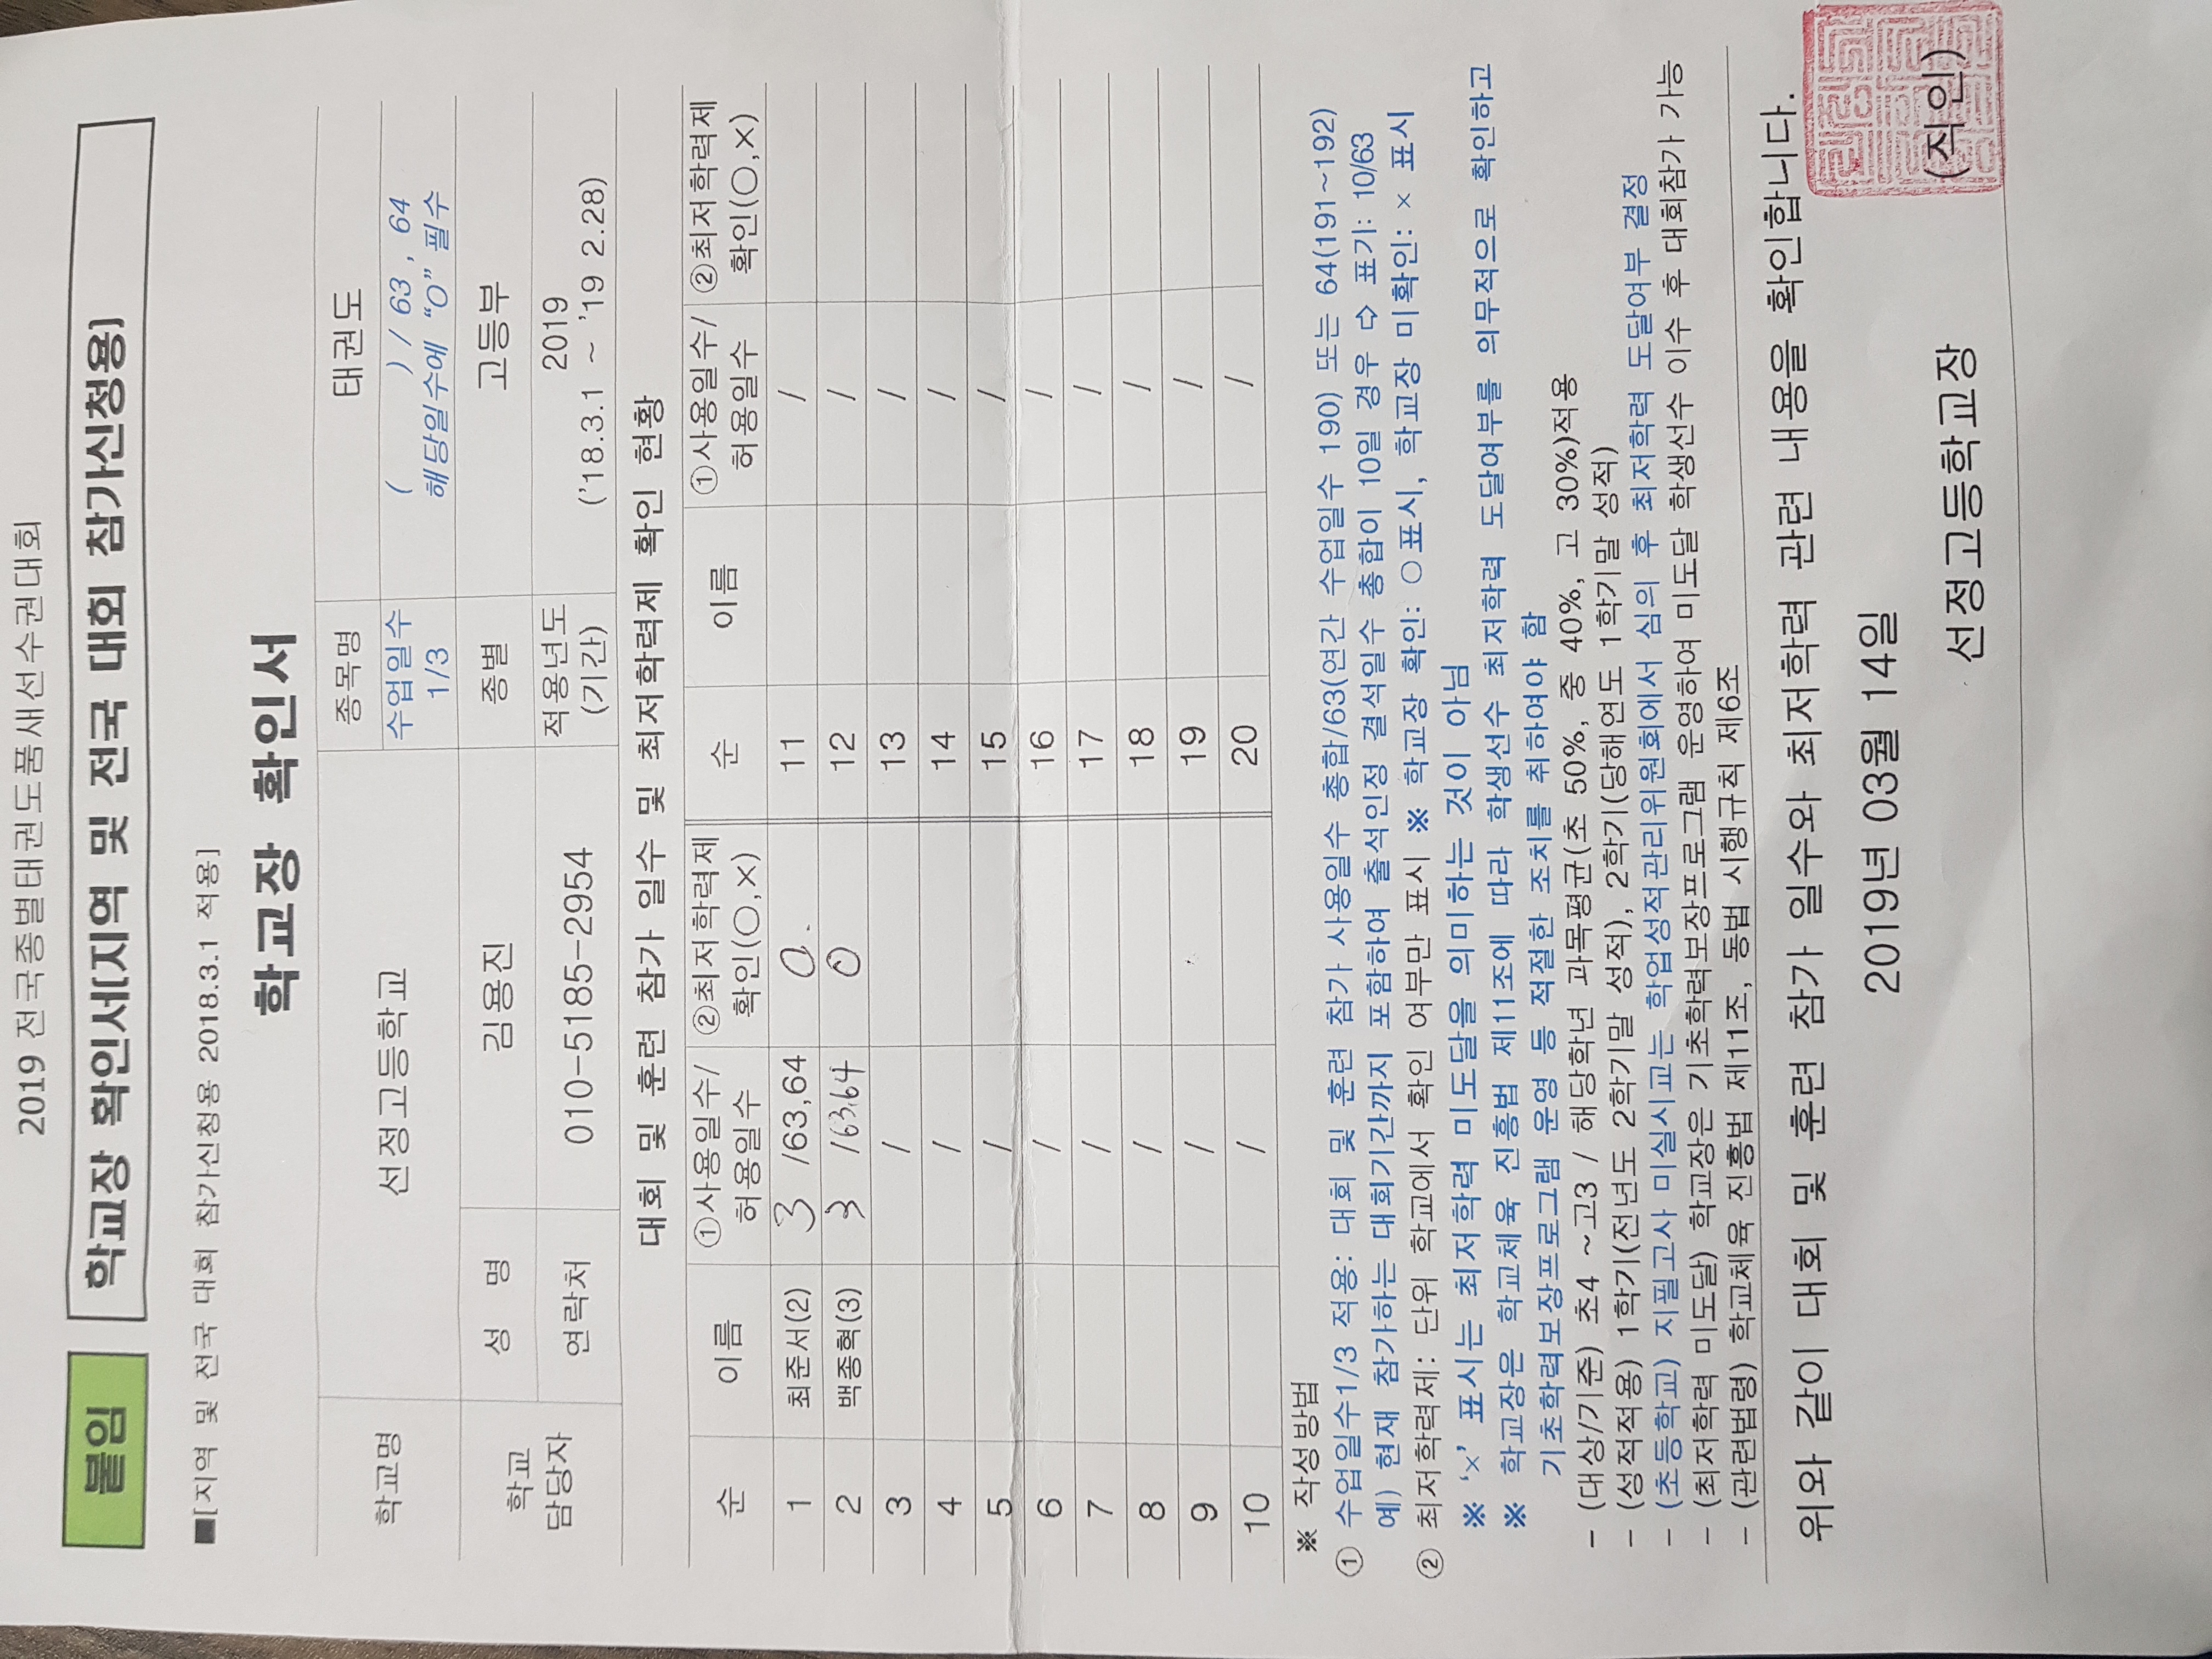 2019 전국종별태권도품새선수권대회
붙임 학교장 확인서[지역 및 전국 대회 참가신청용]
■[지역 및 전국 대회 참가신청용 2018.3.1 적용]
학교장 확인서
학교명 선정고등학교 종목명 태권도
수업일수 1/3 ( ) / 63 , 64
해당일수에 “O” 필수
학교 담당자 성 명 김용진 종별 고등부
연락처 010-5185-2954 적용년도 (기간) 2019
('18.3.1 ~ '19 2.28)
대회 및 훈련 참가 일수 및 최저학력제 확인 현황
순 이름 ①사용일수/허용일수 ②최저학력제 확인(○,×) 순 이름 ①사용일수/허용일수 ②최저학력제 확인(○,×)
1 최준서(2) 3 /63,64 O. 11 /
2 백종혁(3) 3 /63,64 O 12 /
3 / 13 /
4 / 14 /
5 / 15 /
6 / 16 /
7 / 17 /
8 / 18 /
9 / 19 /
10 / 20 /
※ 작성방법
① 수업일수1/3 적용: 대회 및 훈련 참가 사용일수 총합/63(연간 수업일수 190) 또는 64(191~192)
예) 현재 참가하는 대회기간까지 포함하여 출석인정 결석일수 총합이 10일 경우 ⇨ 표기: 10/63
② 최저학력제: 단위 학교에서 확인 여부만 표시 ※ 학교장 확인: ○표시, 학교장 미확인: × 표시
※ ‘×’ 표시는 최저학력 미도달을 의미하는 것이 아님
※ 학교장은 학교체육 진흥법 제11조에 따라 학생선수 최저학력 도달여부를 의무적으로 확인하고
기초학력보장프로그램 운영 등 적절한 조치를 취하여야 함
- (대상/기준) 초4 ~고3 / 해당학년 과목평균(초 50%, 중 40%, 고 30%)적용
- (성적적용) 1학기(전년도 2학기말 성적), 2학기(당해연도 1학기말 성적)
- (초등학교) 지필고사 미실시교는 학업성적관리위원회에서 심의 후 최저학력 도달여부 결정
- (최저학력 미도달) 학교장은 기초학력보장프로그램 운영하여 미도달 학생선수 이수 후 대회참가 가능
- (관련법령) 학교체육 진흥법 제11조, 동법 시행규칙 제6조
위와 같이 대회 및 훈련 참가 일수와 최저학력 관련 내용을 확인합니다.
2019년 03월 14일
선정고등학교장 (직인)